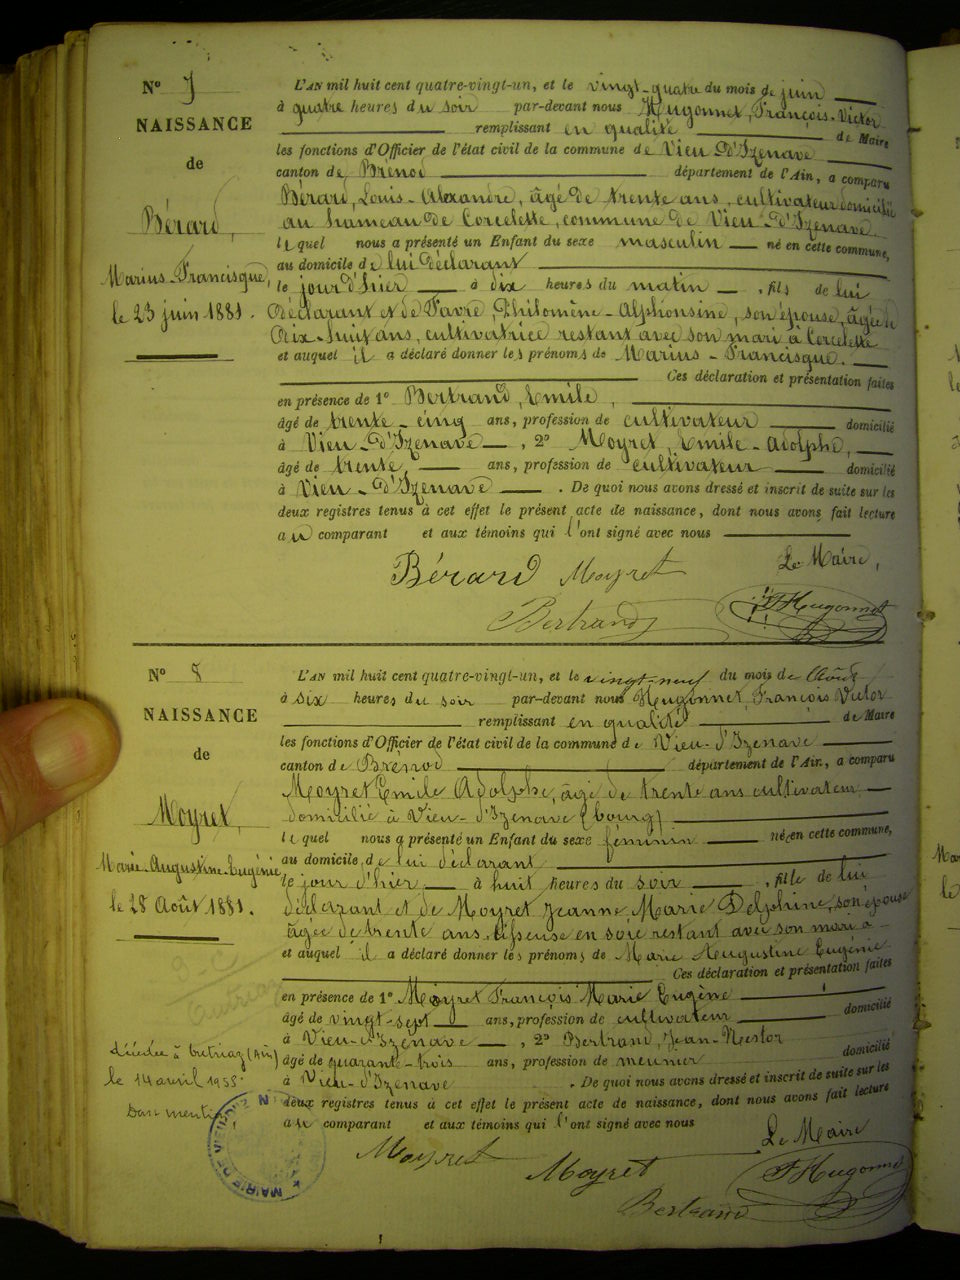 Nº 7
NAISSANCE
de
Bérard,
Marius-Francisque,
le 23 juin 1881.
L'AN mil huit cent quatre-vingt-un, et le vingt-quatre du mois de juin
à quatre heures du soir par-devant nous Hugonnet, François-Victor
remplissant en qualité de Maire
les fonctions d'Officier de l'état civil de la commune de Vieu-d'Izenave
canton de Brénod département de l'Ain, a comparu
Bérard, Louis-Alexandre, âgé de trente ans, cultivateur domicilié
au hameau de Corcelette, commune de Vieu-d'Izenave.
lequel nous a présenté un Enfant du sexe masculin né en cette commune,
au domicile de lui déclarant
le jour d'hier à dix heures du matin, fils de lui
déclarant et de Favre, Philomène-Alphonsine, son épouse, âgée de
dix-huit ans, cultivatrice restant avec son mari à Corcelette
et auquel il a déclaré donner les prénoms de Marius-Francisque.
Ces déclaration et présentation faites
en présence de 1º Bertrand, Emile,
âgé de trente-cinq ans, profession de cultivateur domicilié
à Vieu-d'Izenave, 2º Moyret, Emile-Adolphe,
âgé de trente, ans, profession de cultivateur domicilié
à Vieu-d'Izenave. De quoi nous avons dressé et inscrit de suite sur les
deux registres tenus à cet effet le présent acte de naissance, dont nous avons fait lecture
au comparant et aux témoins qui l'ont signé avec nous
Le Maire,
Bérard Moyret
Bertrand FHugonnet
Nº 8
NAISSANCE
de
Moyret,
Marie-Augustine-Eugénie
le 28 Août 1881.
L'AN mil huit cent quatre-vingt-un, et le vingt-neuf du mois de Août
à six heures du soir par-devant nous Hugonnet François Victor
remplissant en qualité de Maire
les fonctions d'Officier de l'état civil de la commune de Vieu-d'Izenave
canton de Brénod département de l'Ain, a comparu
Moyret Emile Adolphe, âgé de trente ans cultivateur
domicilié à Vieu-d'Izenave (bourg)
lequel nous a présenté un Enfant du sexe féminin né en cette commune,
au domicile de lui déclarant
le jour d'hier, à huit heures du soir, fille de lui
déclarant et de Moyret Jeanne Marie Delphine, son épouse
âgée de trente ans, tisseuse en soie restant avec son mari à
et auquel il a déclaré donner les prénoms de Marie Augustine Eugénie
Ces déclaration et présentation faites
en présence de 1º Moyret François Marie Eugène
âgé de vingt-sept ans, profession de cultivateur domicilié
à Vieu-d'Izenave, 2º Bertrand, Jean-Nestor
âgé de quarante-trois ans, profession de meunier domicilié
à Vieu-d'Izenave. De quoi nous avons dressé et inscrit de suite sur les
deux registres tenus à cet effet le présent acte de naissance, dont nous avons fait lecture
au comparant et aux témoins qui l'ont signé avec nous
Le Maire
Moyret Moyret FHugonnet
Bertrand
décédée à (Ain)
le 14 avril 1955.
Dont mention
MAIRIE DE